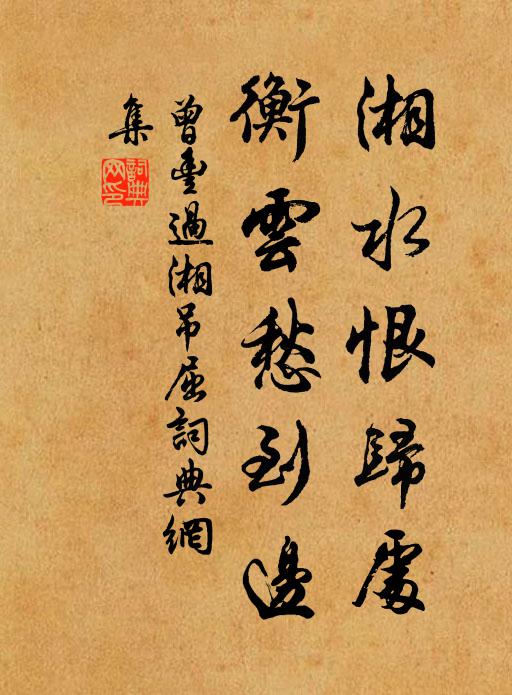 湘水恨歸處
衡雲愁到邊
曾豐過湘吊屈詞典網
集
詞典
网印